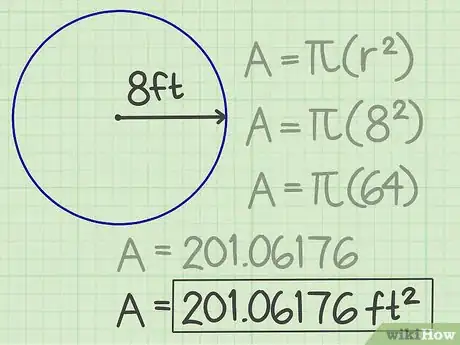 8ft
A = π(r²)
A = π(8²)
A = π(64)
A = 201.06176
A = 201.06176 ft²
wikiHow